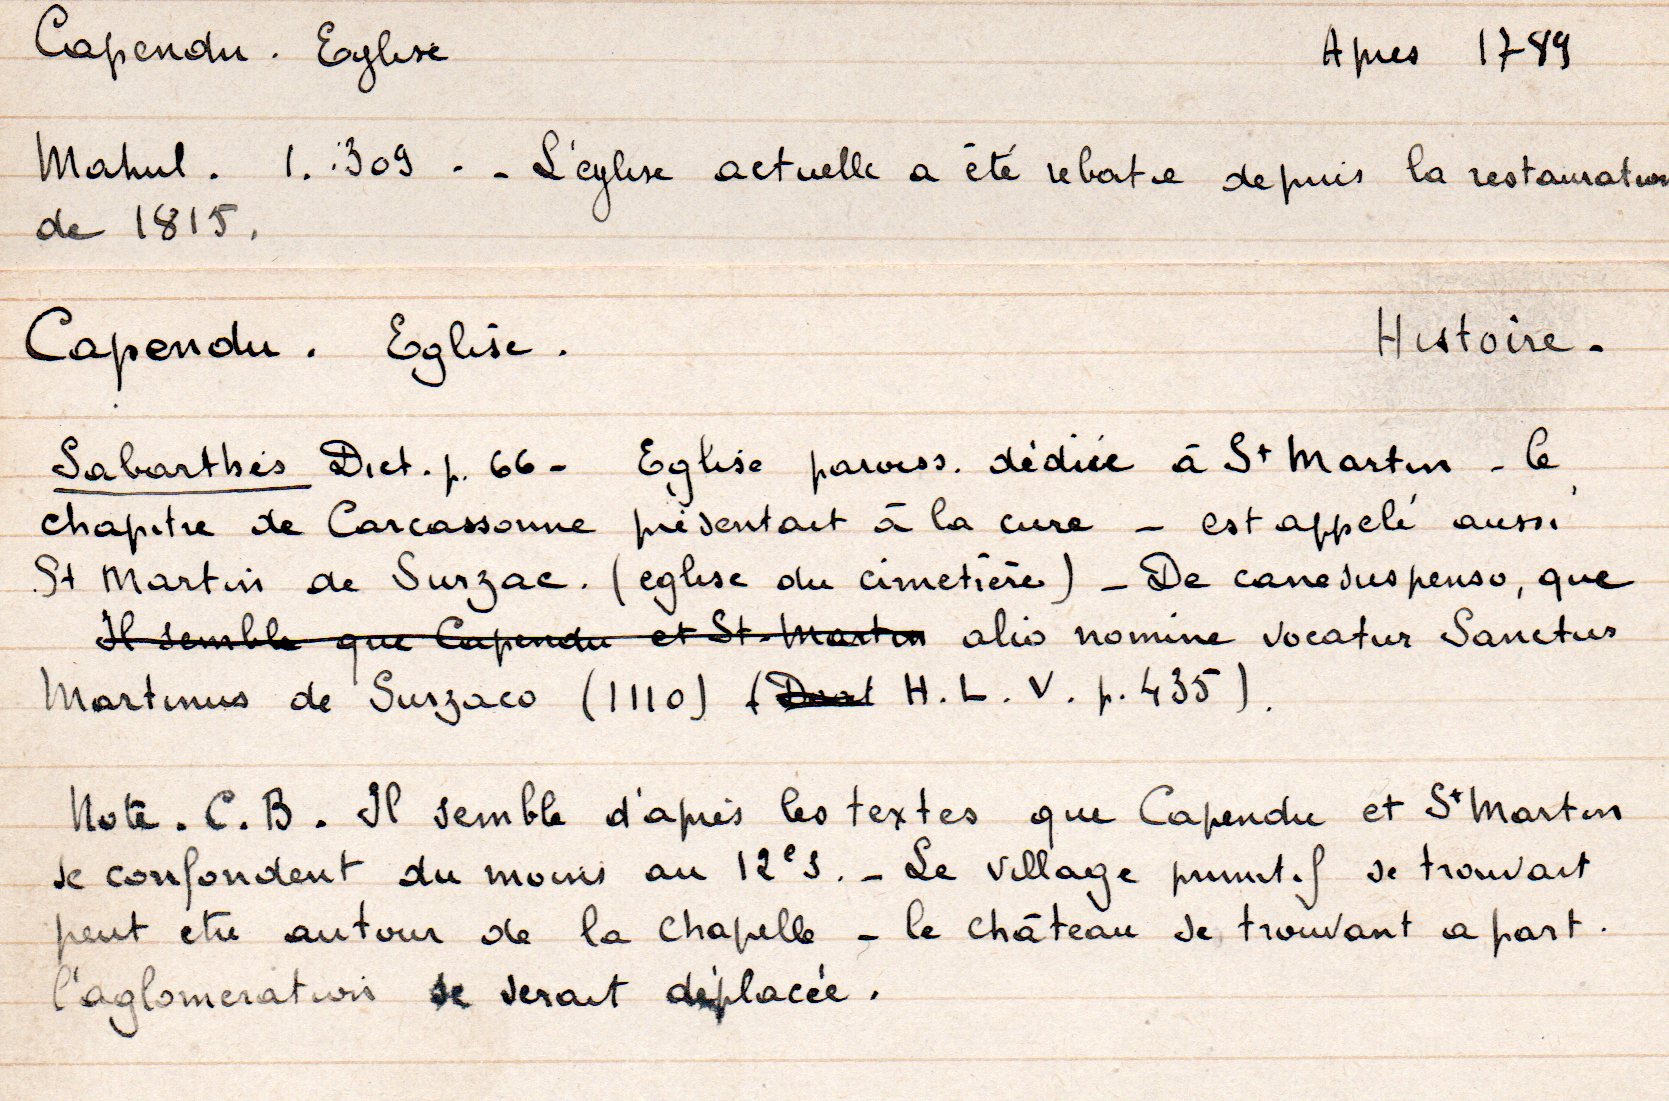 Capendu. Eglise Apres 1789
Mahul. 1. 309 - - L'église actuelle a été rebatie depuis la restauration
de 1815.
Capendu. Eglise. Histoire.
Sabarthès Dict. p. 66 - Eglise paroiss. dédiée à St Martin - le
chapitre de Carcassonne présentait à la cure - est appelé aussi
St Martin de Surzac. (eglise du cimetière) - De canesuspenso, que
Il semble que Capendu et St-Martin alio nomine vocatur Sanctus
Martinus de Surzaco (1110) (Doat H. L. V. p. 435).
Note. C. B. Il semble d'après les textes que Capendu et St Martin
se confondent du moins au 12e s. - Le village primitif se trouvait
peut etre autour de la chapelle - le château se trouvant a part.
l'aglomeration se serait déplacée.